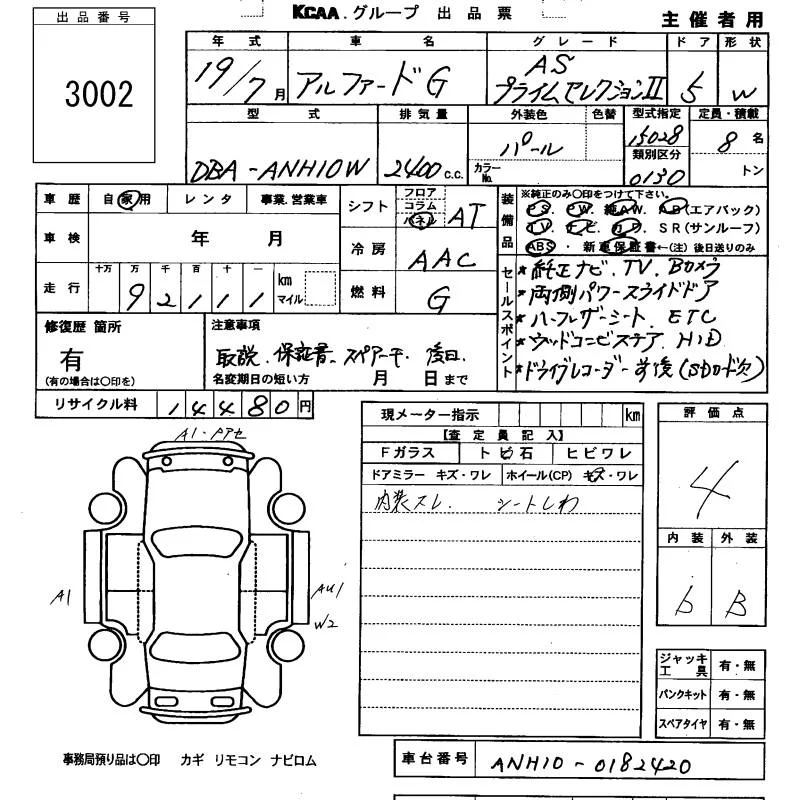 KCAA.グループ 出品票
主催者用
出品番号
3002
年式 車名 グレード ドア 形状
19/7月 アルファードG AS プライムセレクションⅡ 5 W
型式 排気量 外装色 色替 型式指定 定員・積載
DBA-ANH10W 2400 c.c. パール カラーNo. 15028 8名
類別区分 0130 トン
車歴 自家用 レンタ 事業.営業車
車検 年 月
走行 十万 万 千 百 十 一 km マイル
9 2 1 1 1
シフト フロア コラム パネル AT
冷房 AAC
燃料 G
装備品 ※純正のみ〇印をつけて下さい。
PS. PW. 純AW. AB(エアバック)
TV. ナビ. カワ. SR(サンルーフ)
ABS・新車保証書←(注)後日送りのみ
セールスポイント
*純正ナビ. TV. Bカメラ
*両側パワースライドドア
*ハーフレザーシート. ETC
*ウッドコンビステア. HID
*ドライブレコーダー前後(SDカード欠)
修復歴 箇所
有
(有の場合は〇印を)
注意事項
取説. 保証書. スペアーキー 後日.
名変期日の短い方 月 日まで
リサイクル料 14480円
現メーター指示 km
【査定員記入】
Fガラス トビ石 ヒビワレ
ドアミラー キズ・ワレ ホイール(CP) キズ・ワレ
内装スレ. シートしわ
評価点
4
内装 外装
b B
A1・PアセA1
AU1
W2
ジャッキ工具 有・無
パンクキット 有・無
スペアタイヤ 有・無
事務局預り品は〇印 カギ リモコン ナビロム
車台番号 ANH10-0182420